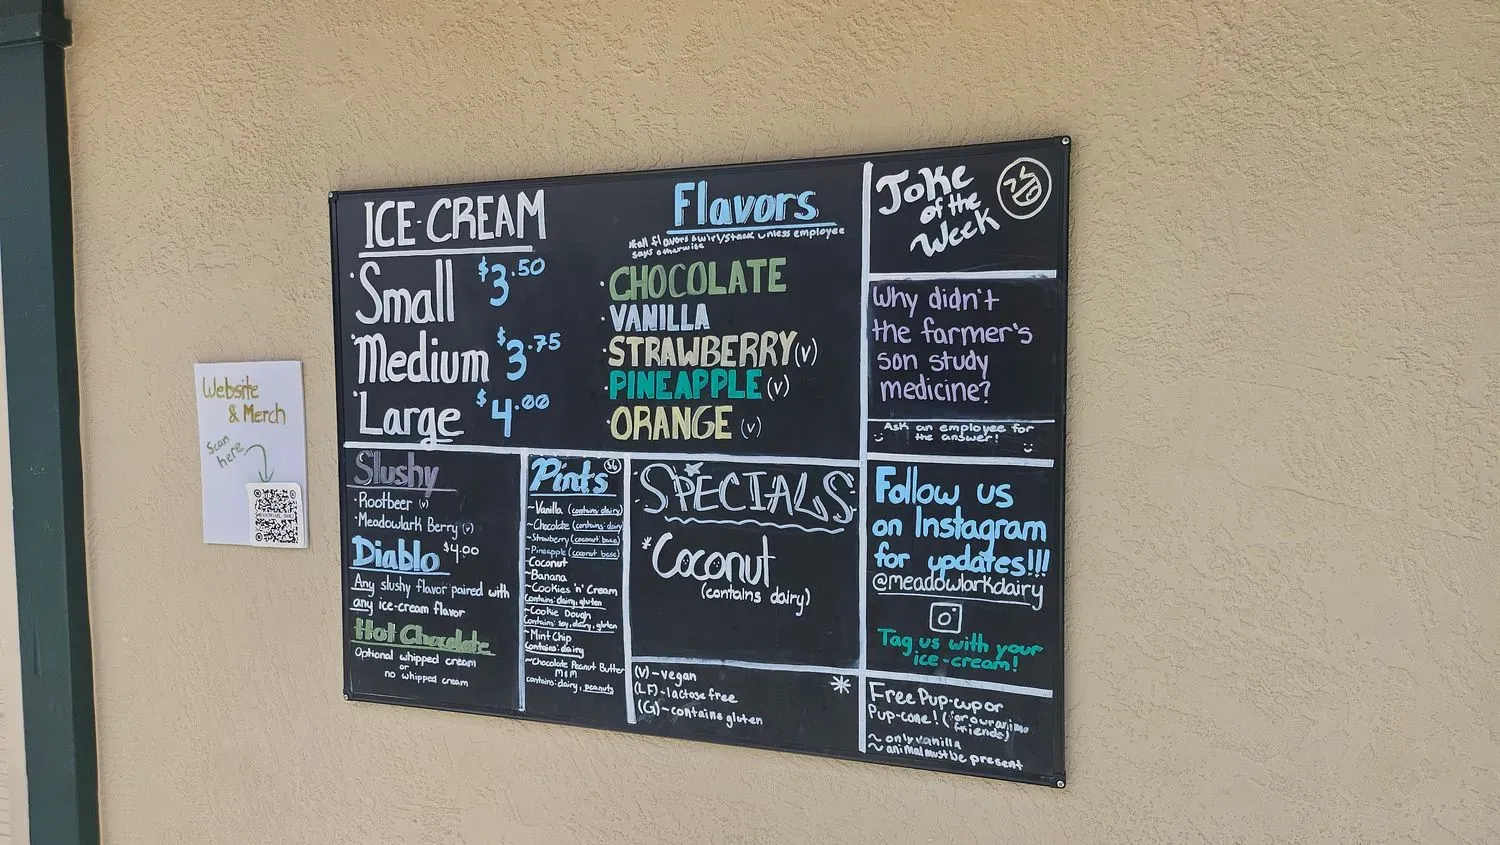 Website
& Merch
Scan
here
ICE-CREAM
Small $3.50
Medium $3.75
Large $4.00
Flavors
*all flavors swirl/stack unless employee
says otherwise
CHOCOLATE
VANILLA
STRAWBERRY (v)
PINEAPPLE (v)
ORANGE (v)
Joke
of the
Week
Why didn't
the farmer's
son study
medicine?
Ask an employee for
the answer!
Slushy
Rootbeer (v)
Meadowlark Berry (v)
Diablo $4.00
Any slushy flavor paired with
any ice-cream flavor
Hot Chocolate
Optional whipped cream
or
no whipped cream
Pints $6
~Vanilla (contains dairy)
~Chocolate (contains dairy)
~Strawberry (coconut base)
~Pineapple (coconut base)
~Coconut
~Banana
~Cookies 'n' Cream
contains: dairy, gluten
~Cookie Dough
contains: soy, dairy, gluten
~Mint Chip
contains: dairy
~Chocolate Peanut Butter
M&M
contains: dairy, peanuts
SPECIALS
*Coconut
(contains dairy)
(V)-vegan
(LF)-lactose free
(G)-contains gluten
Follow us
on Instagram
for updates!!!
@meadowlarkdairy
Tag us with your
ice-cream!
Free Pup-cup or
Pup-cone! (for our animal
friends)
~ only vanilla
~ animal must be present